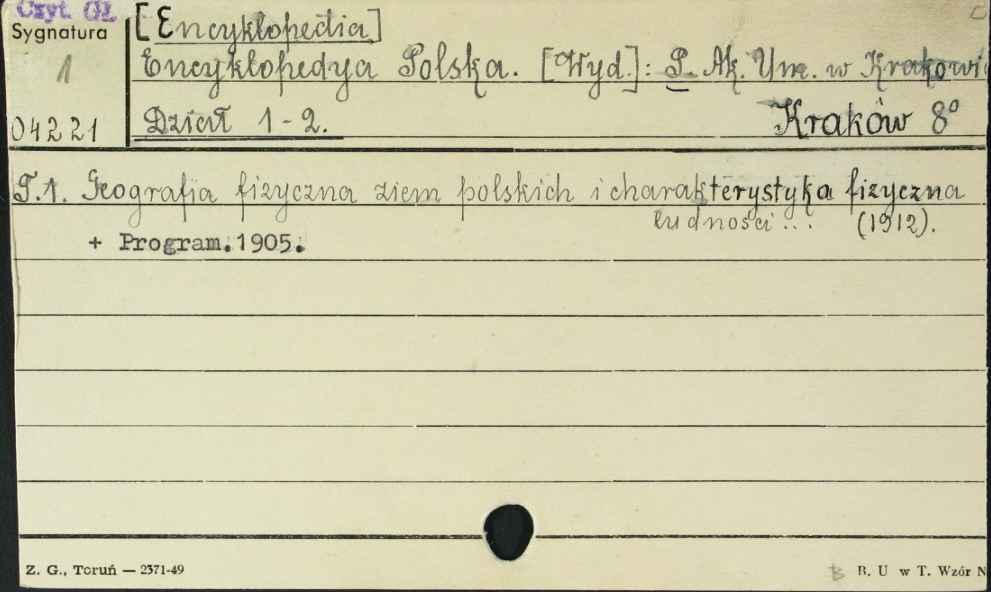 Czyt. Gł.
Sygnatura
1
04221
[Encyklopedia]
Encyklopedya Polska. [Wyd.]: P. Ak. Um. w Krakowi
Dział 1-2. Kraków 8°
T.1. Geografia fizyczna ziem polskich i charakterystyka fizyczna
ludności ... (1912).
+ Program. 1905.
Z. G., Toruń — 2371-49
B. U w T. Wzór N